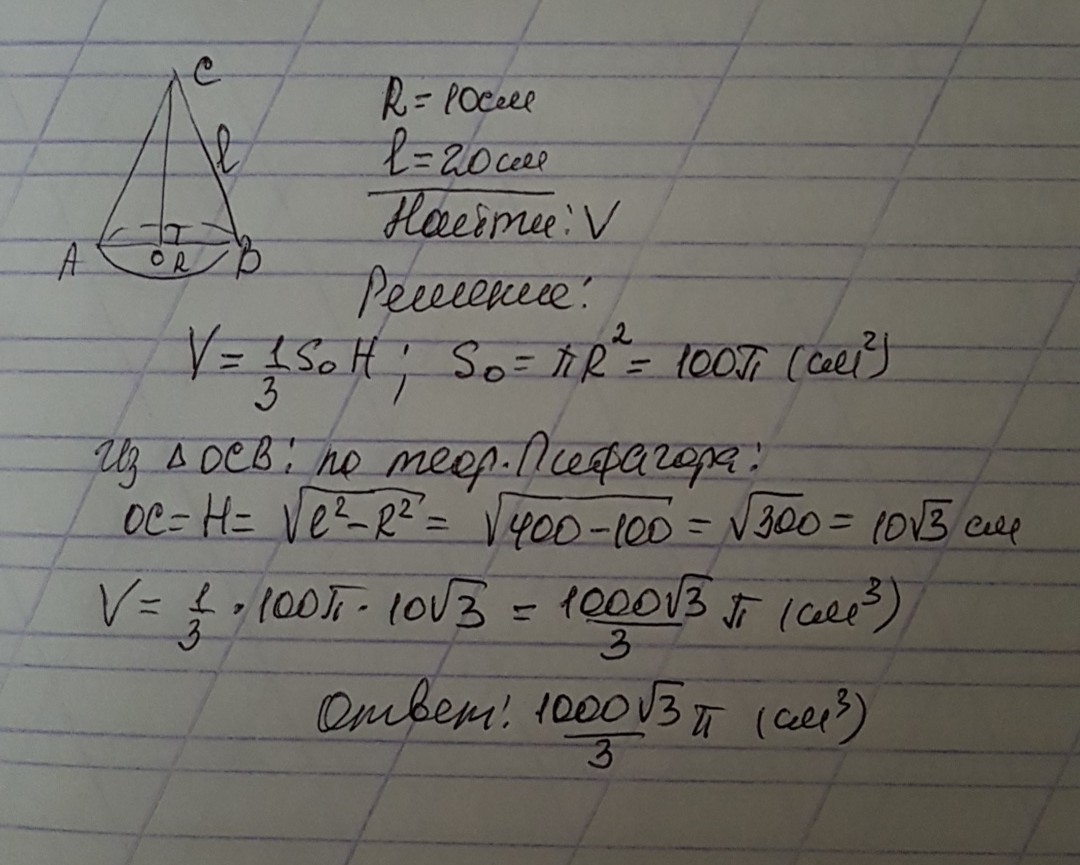 C
l
A O R B
R = 10см
l = 20см
Найти: V
Решение:
V = 1/3 S₀ H ; S₀ = πR² = 100π (см²)
Из △ OCB: по теор. Пифагора:
OC = H = √(l² - R²) = √(400 - 100) = √300 = 10√3 см
V = 1/3 · 100π · 10√3 = 1000√3/3 π (см³)
Ответ: 1000√3/3 π (см³)